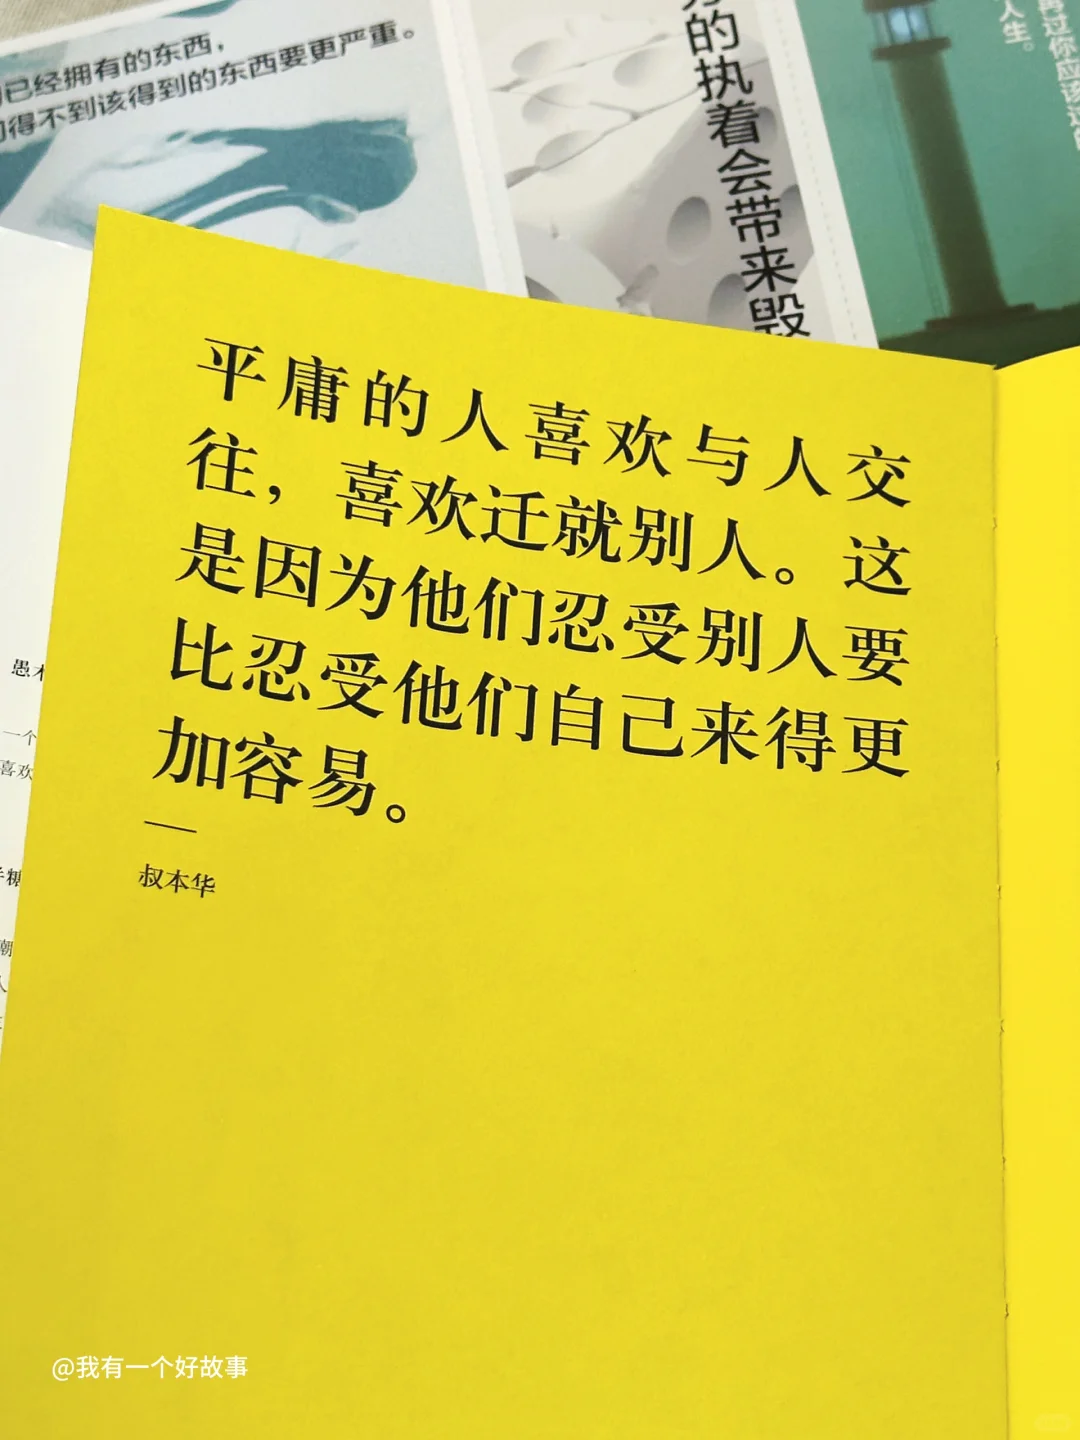 已经拥有的东西，
得不到该得到的东西要更严重。
的执着会带来毁
再过你应该过的
人生。
平庸的人喜欢与人交
往，喜欢迁就别人。这
是因为他们忍受别人要
比忍受他们自己来得更
加容易。
—
叔本华
愚木
一个
喜欢
半糖
潮
人
@我有一个好故事